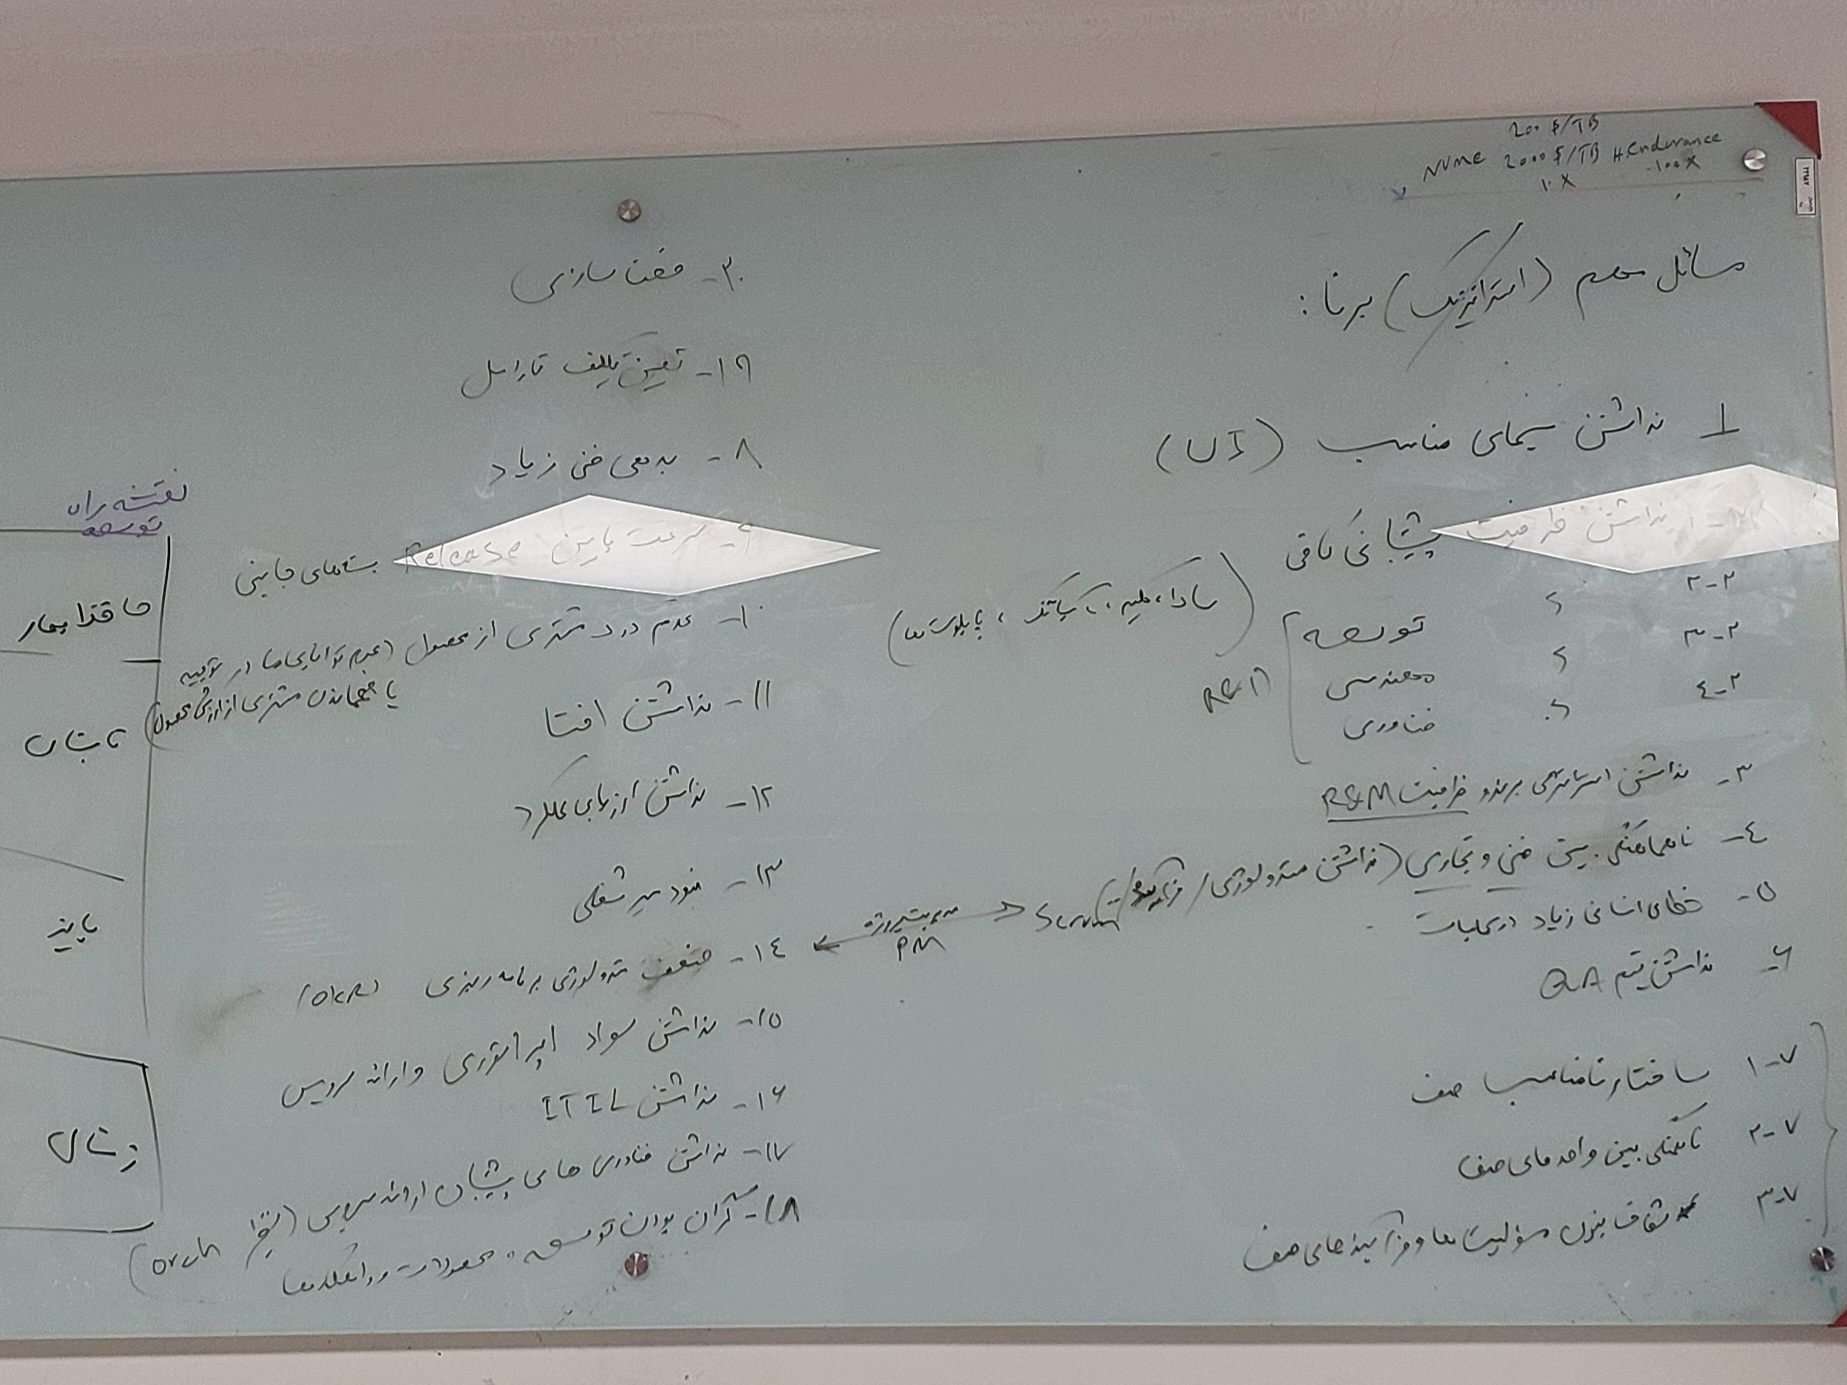 200 $/TB
NVMe 2000 $/TB H.Endurance
10X 100X
مسائل مهم (استراتژیک) برنا:
۱ـ نداشتن سیمای مناسب (UI)
۲-۱ نداشتن ظرفیت پشتیبانی کافی
۲-۲ توسعه
۲-۳ مهندسی
۲-۴ فناوری
R&D
۳- نداشتن استراتژی برند و ظرفیت R&M
۴- ناهماهنگی بین فنی و تجاری (نداشتن متدولوژی / فرآیند) Scrum
۵- خطای انسانی زیاد در عملیات
۶- نداشتن تیم QA
۷-۱ ساختار نامناسب صف
۷-۲ ناهمگنی بین واحدهای صف
۷-۳ شفاف نبودن مسئولیت‌ها و فرآیندهای صف
۲۰- صفت سازی
۱۹- تعیین تکلیف
۸- بدهی فنی زیاد
۹- سرعت پایین Release بسته‌های جانبی
۱۰- عدم درد مشتری از محصول (عدم توانایی ما در توجیه
یا فهماندن مشتری از ارزش محصول)
۱۱- نداشتن افتا
۱۲- نداشتن ارزیابی عملکرد
۱۳- نبود مسیر شغلی
۱۴- ضعف متدولوژی برنامه ریزی (OKR)
مدیریت پروژه
PM
۱۵- نداشتن سواد اپراتوری و ارائه سرویس
۱۶- نداشتن ITIL
۱۷- نداشتن فناوری های پشتیبان ارائه سرویس (نظیر Orch)
۱۸- گران بودن توسعه محصولات
نقشه راه
توسعه
تابستان
پاییز
زمستان